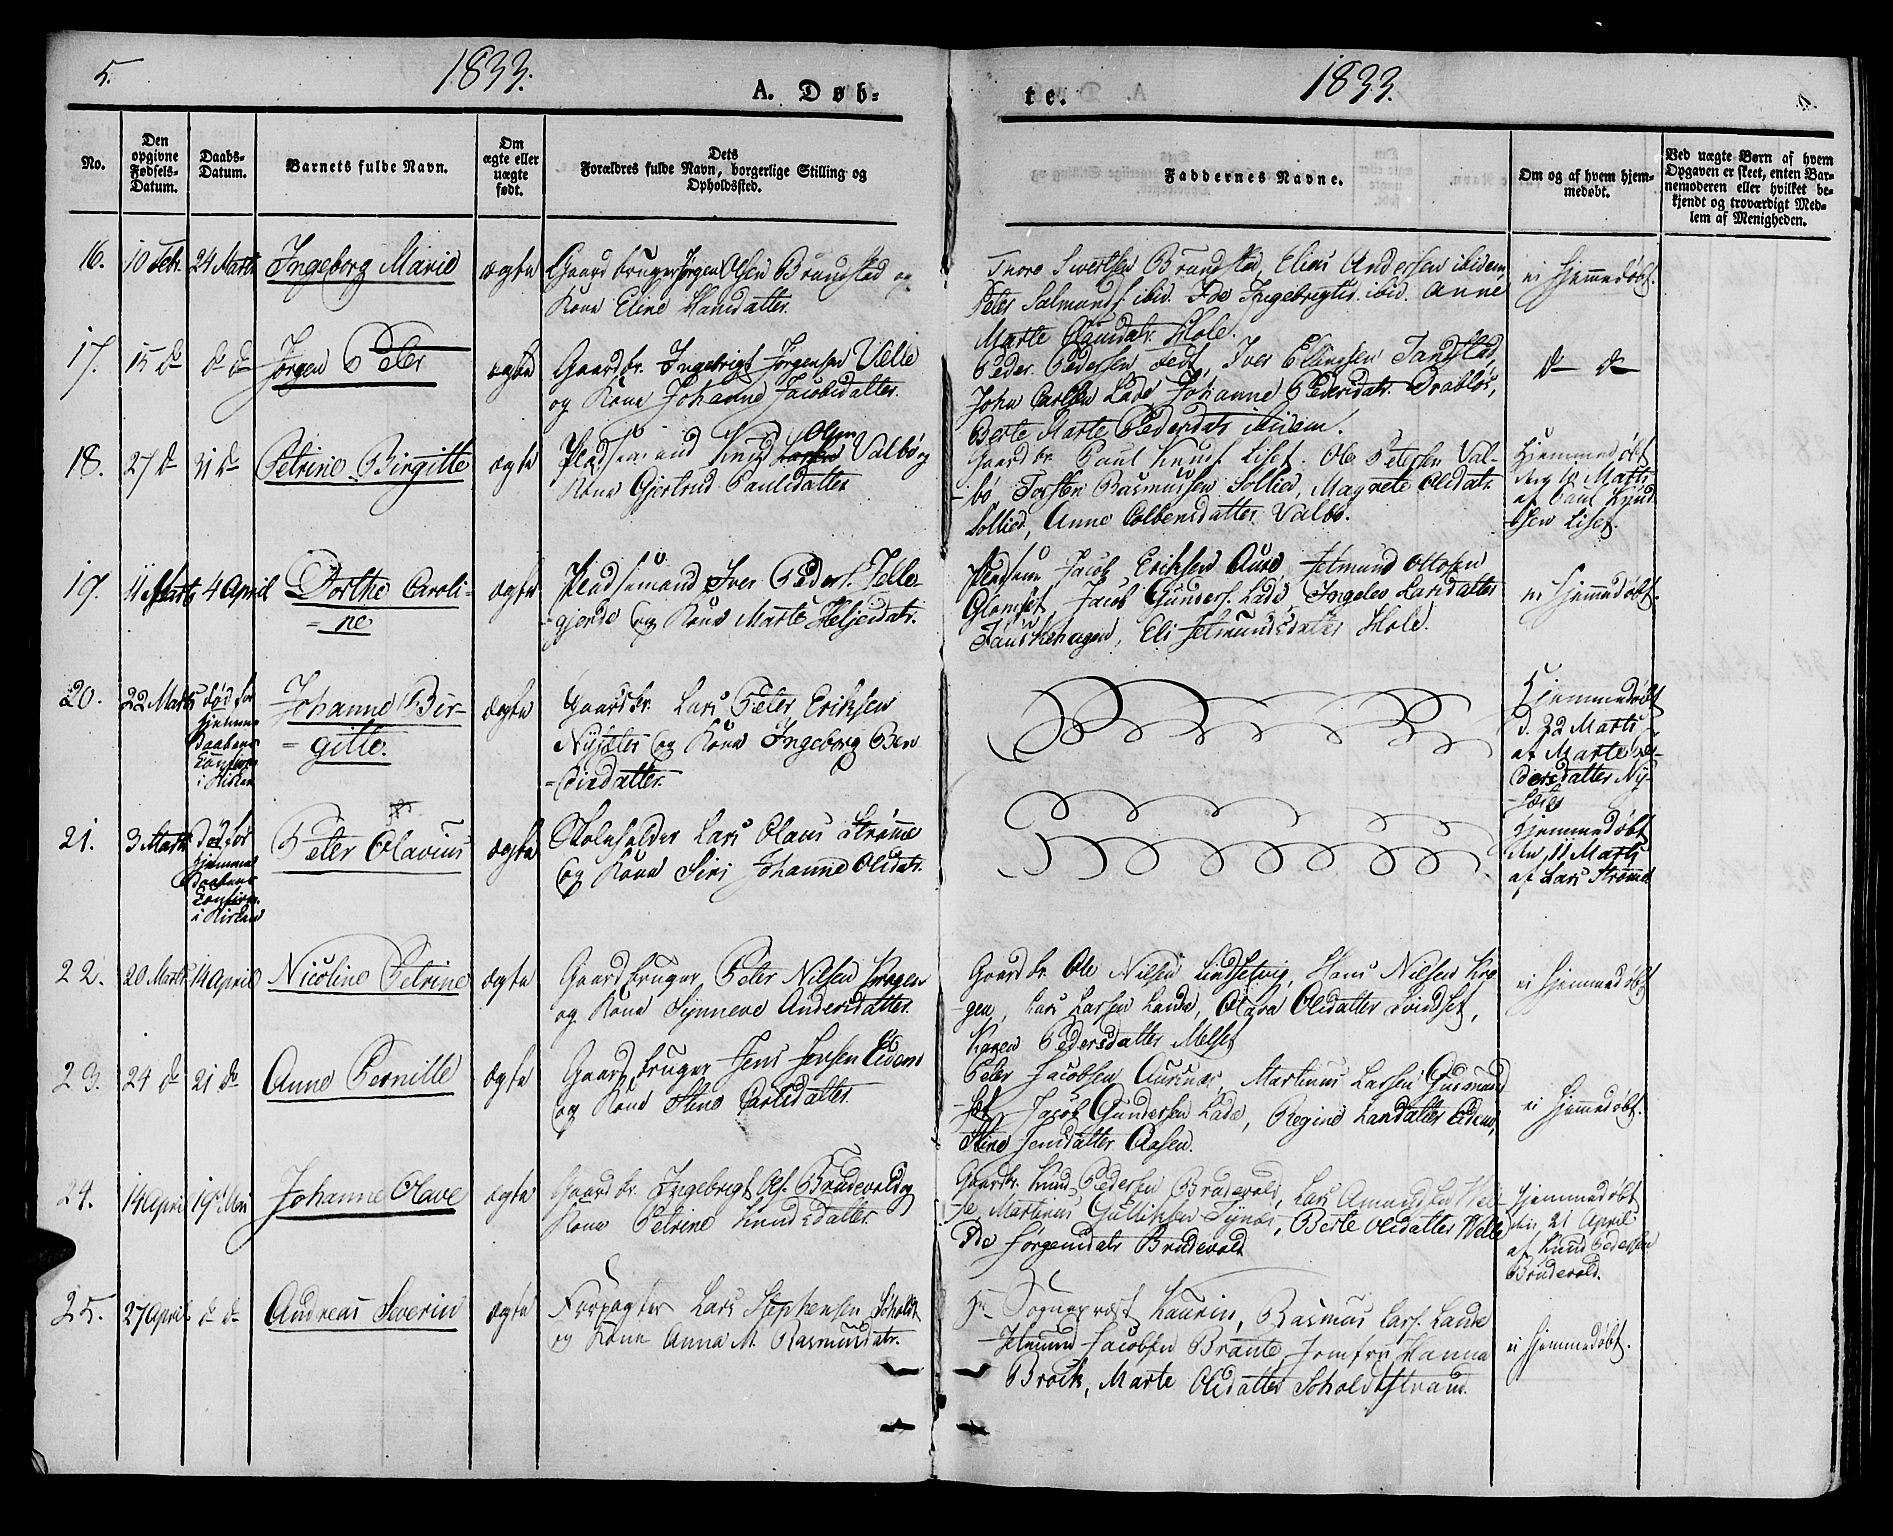 5.
1833.
A. Døb-
te.
1833.
No.
Den opgivne Fødsels-Datum.
Daabs-Datum.
Barnets fulde Navn.
Om ægte eller uægte født.
Dets
Forældres fulde Navn, borgerlige Stilling og
Opholdssted.
Faddernes Navne.
Om og af hvem hjem-
medøbt.
Ved uægte Børn af hvem
Opgaven er skeet, enten Bar-
nemoderen eller hvilket be-
kjendt og troværdigt Med-
lem af Menigheden.
16. 10 Febr. 24 Marts Ingeborg Marie ægte Gaardbruger Jørgen Olsen Brandstad og
Kone Eline Hansdatter.
Thore Sivertsen Brandstad, Elias Andersen ibidem,
Peter Salmunds. ibid. Ide Ingebrigtsd. ibid. Anne
Marte Hole.
ei hjemmedøbt.
17. 15 do do do Jørgen Peter ægte Gaardbr. Ingebrigt Jørgensen Velle
og Kone Johanne Jacobsdatter.
Peder Pedersen Iver Ellingsen Tandstad,
John Carlsen Lade Johanne Pedersdatr. Drabløs,
Berte Marte Pedersdatr ibidem.
do do
18. 27 do 31 do Petrine Birgitte ægte Pladsemand Knud Olsen Valbø og
Kone Gjertrud Paulsdatter
Gaardbr. Paul Knuds. Liset. Ole Petersen Val-
bø, Torsten Rasmussen Sollied, Magnete Olsdatr.
Sollied, Anne Colbensdatter Valbø.
Hjemmedøbt
den 12 Marts
af Paul Knud-
sen Liset.
19. 11 Marts 4 April Dorthe Caroli-
ne ægte Pladsemand Iver Peders. Velle-
gjerde og Kone Marte Heljesdatr.
Pladsem Jacob Eriksen Aure Jetmund Ottosen
Glomset, Jacob Gunders. Lade, Ingelev Larsdatter
Fauskehagen, Eli Jetmundsdatter Hole.
ei hjemmedøbt.
20. 22 Marts død før
hjemme-
Daabens
Confirm.
i Kirken
Johanne Bir-
gitte. ægte Gaardbr. Lars Peter Eriksen
Nysæter og Kone Ingeborg Ben-
disdatter.
Hjemmedøbt
d. 22 Marts
af Marte Pe-
dersdatter Ny-
sæter
21. 3 Marts Død før
hjemme
Daabens
Confirm.
i Kirken
Peter Olavius ægte Skoleholder Lars Olaus Strømme
og Kone Siri Johanne Olsdatr.
Hjemmedøbt
den 11 Marts
af Lars Strømme
22. 20 Marts 14 April Nicoline Petrine ægte Gaardbruger Peter Nilsen Kragen
og Kone Synneve Andersdatter.
Gaardbr. Ole Nilsen Lindsetvig, Hans Nielsen Kra-
gen, Lars Larsen Lande, Olava Olsdatter Svindset,
Karen Pedersdatter Melset
ei hjemmedøbt
23. 24 do 21 do Anne Pernille ægte Gaardbruger Jens Jensen Eidem
og Kone Stine Carlsdatter.
Peter Jacobsen Aursnæs, Martinus Larsen Gudmund-
set Jacob Gundersen Lade, Regine Larsdatter Eidem,
Stine Jensdatter Aasen.
ei hjemmedøbt.
24. 14 April 19de Mai Johanne Olave ægte Gaardbr. Ingebrigt Ols. Brudevold og
Kone Petrine Knudsdatter.
Gaardbr. Knud Pedersen Brudevold, Lars Amundsen Wel-
le, Martinus Gulliksen Synæs, Berte Olsdatter Welle
Ide Jørgensdatr Brudevold
hjemmedøbt
den 21 April
af Knud Pedersen
Brudevold.
25. 27 April do do Andreas Severin ægte Forpagter Lars Stephensen Søholdt
og Kone Anna M. Rasmusdatr.
Hr. Sogneprest Laurin, Rasmus Lars. Lande
Jetmund Jacobsen Braute, Jomfru Hanna
Brock, Marte Olsdatter Søholdtstrand.
ei hjemmedøbt.